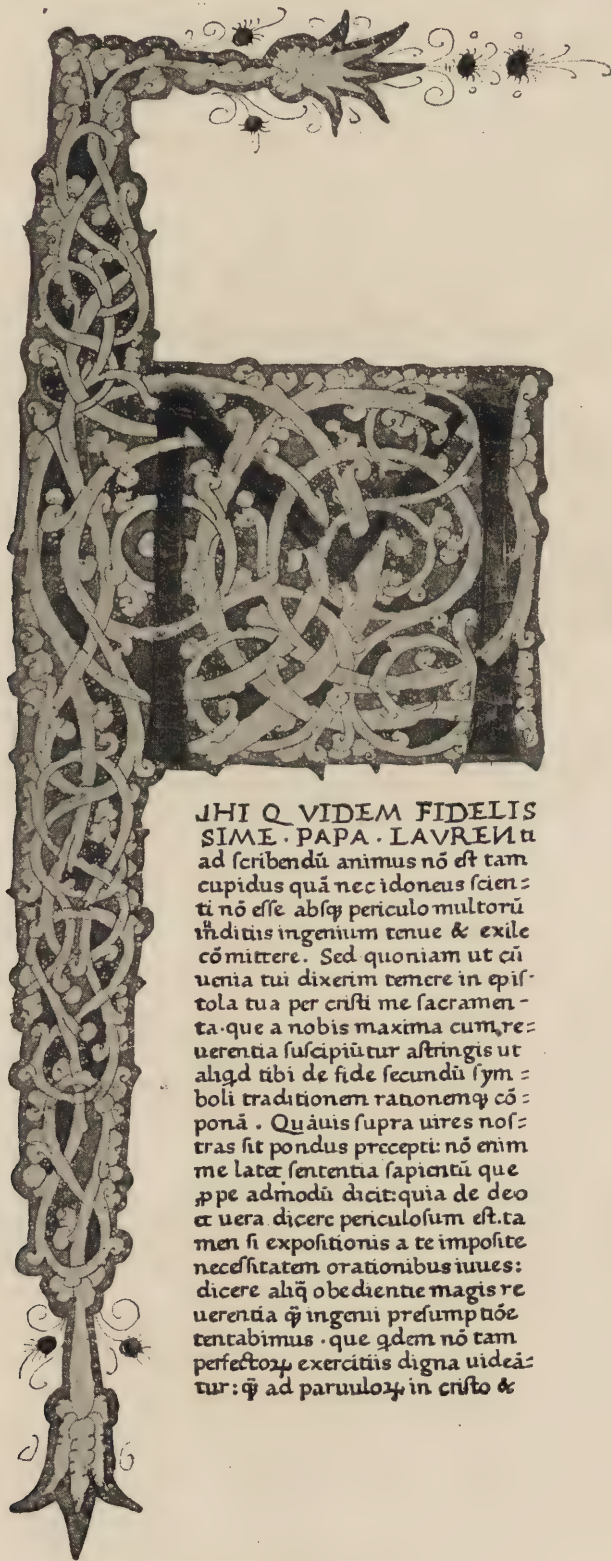 M
IHI QVIDEM FIDELIS
SIME · PAPA · LAVRENti
ad ſcribendū animus nō eſt tam
cupidus quā nec idoneus ſcien=
ti nō eſſe abſqꝫ periculo multorū
iuditiis ingenium tenue & exile
cōmittere. Sed quoniam ut cū
uenia tui dixerim temere in epiſ-
tola tua per criſti me ſacramen-
ta·que a nobis maxima cum re=
uerentia ſuſcipiūtur aſtringis ut
aliqd tibi de fide ſecundū ſym=
boli traditionem rationemqꝫ cō=
ponā. Quāuis ſupra uires noſ=
tras ſit pondus precepti: nō enim
me latet ſententia ſapientū que
ꝓpe admodū dicit: quia de deo
et uera dicere periculoſum eſt. ta
men ſi expoſitionis a te impoſite
neceſſitatem orationibus iuues:
dicere aliq̄ obedientie magis re
uerentia q̄ꝫ ingenii preſumptiōe
tentabimus · que qdem nō tam
perfectoꝝ exercitiis digna uideā=
tur: q̄ꝫ ad paruuloꝝ in criſto &